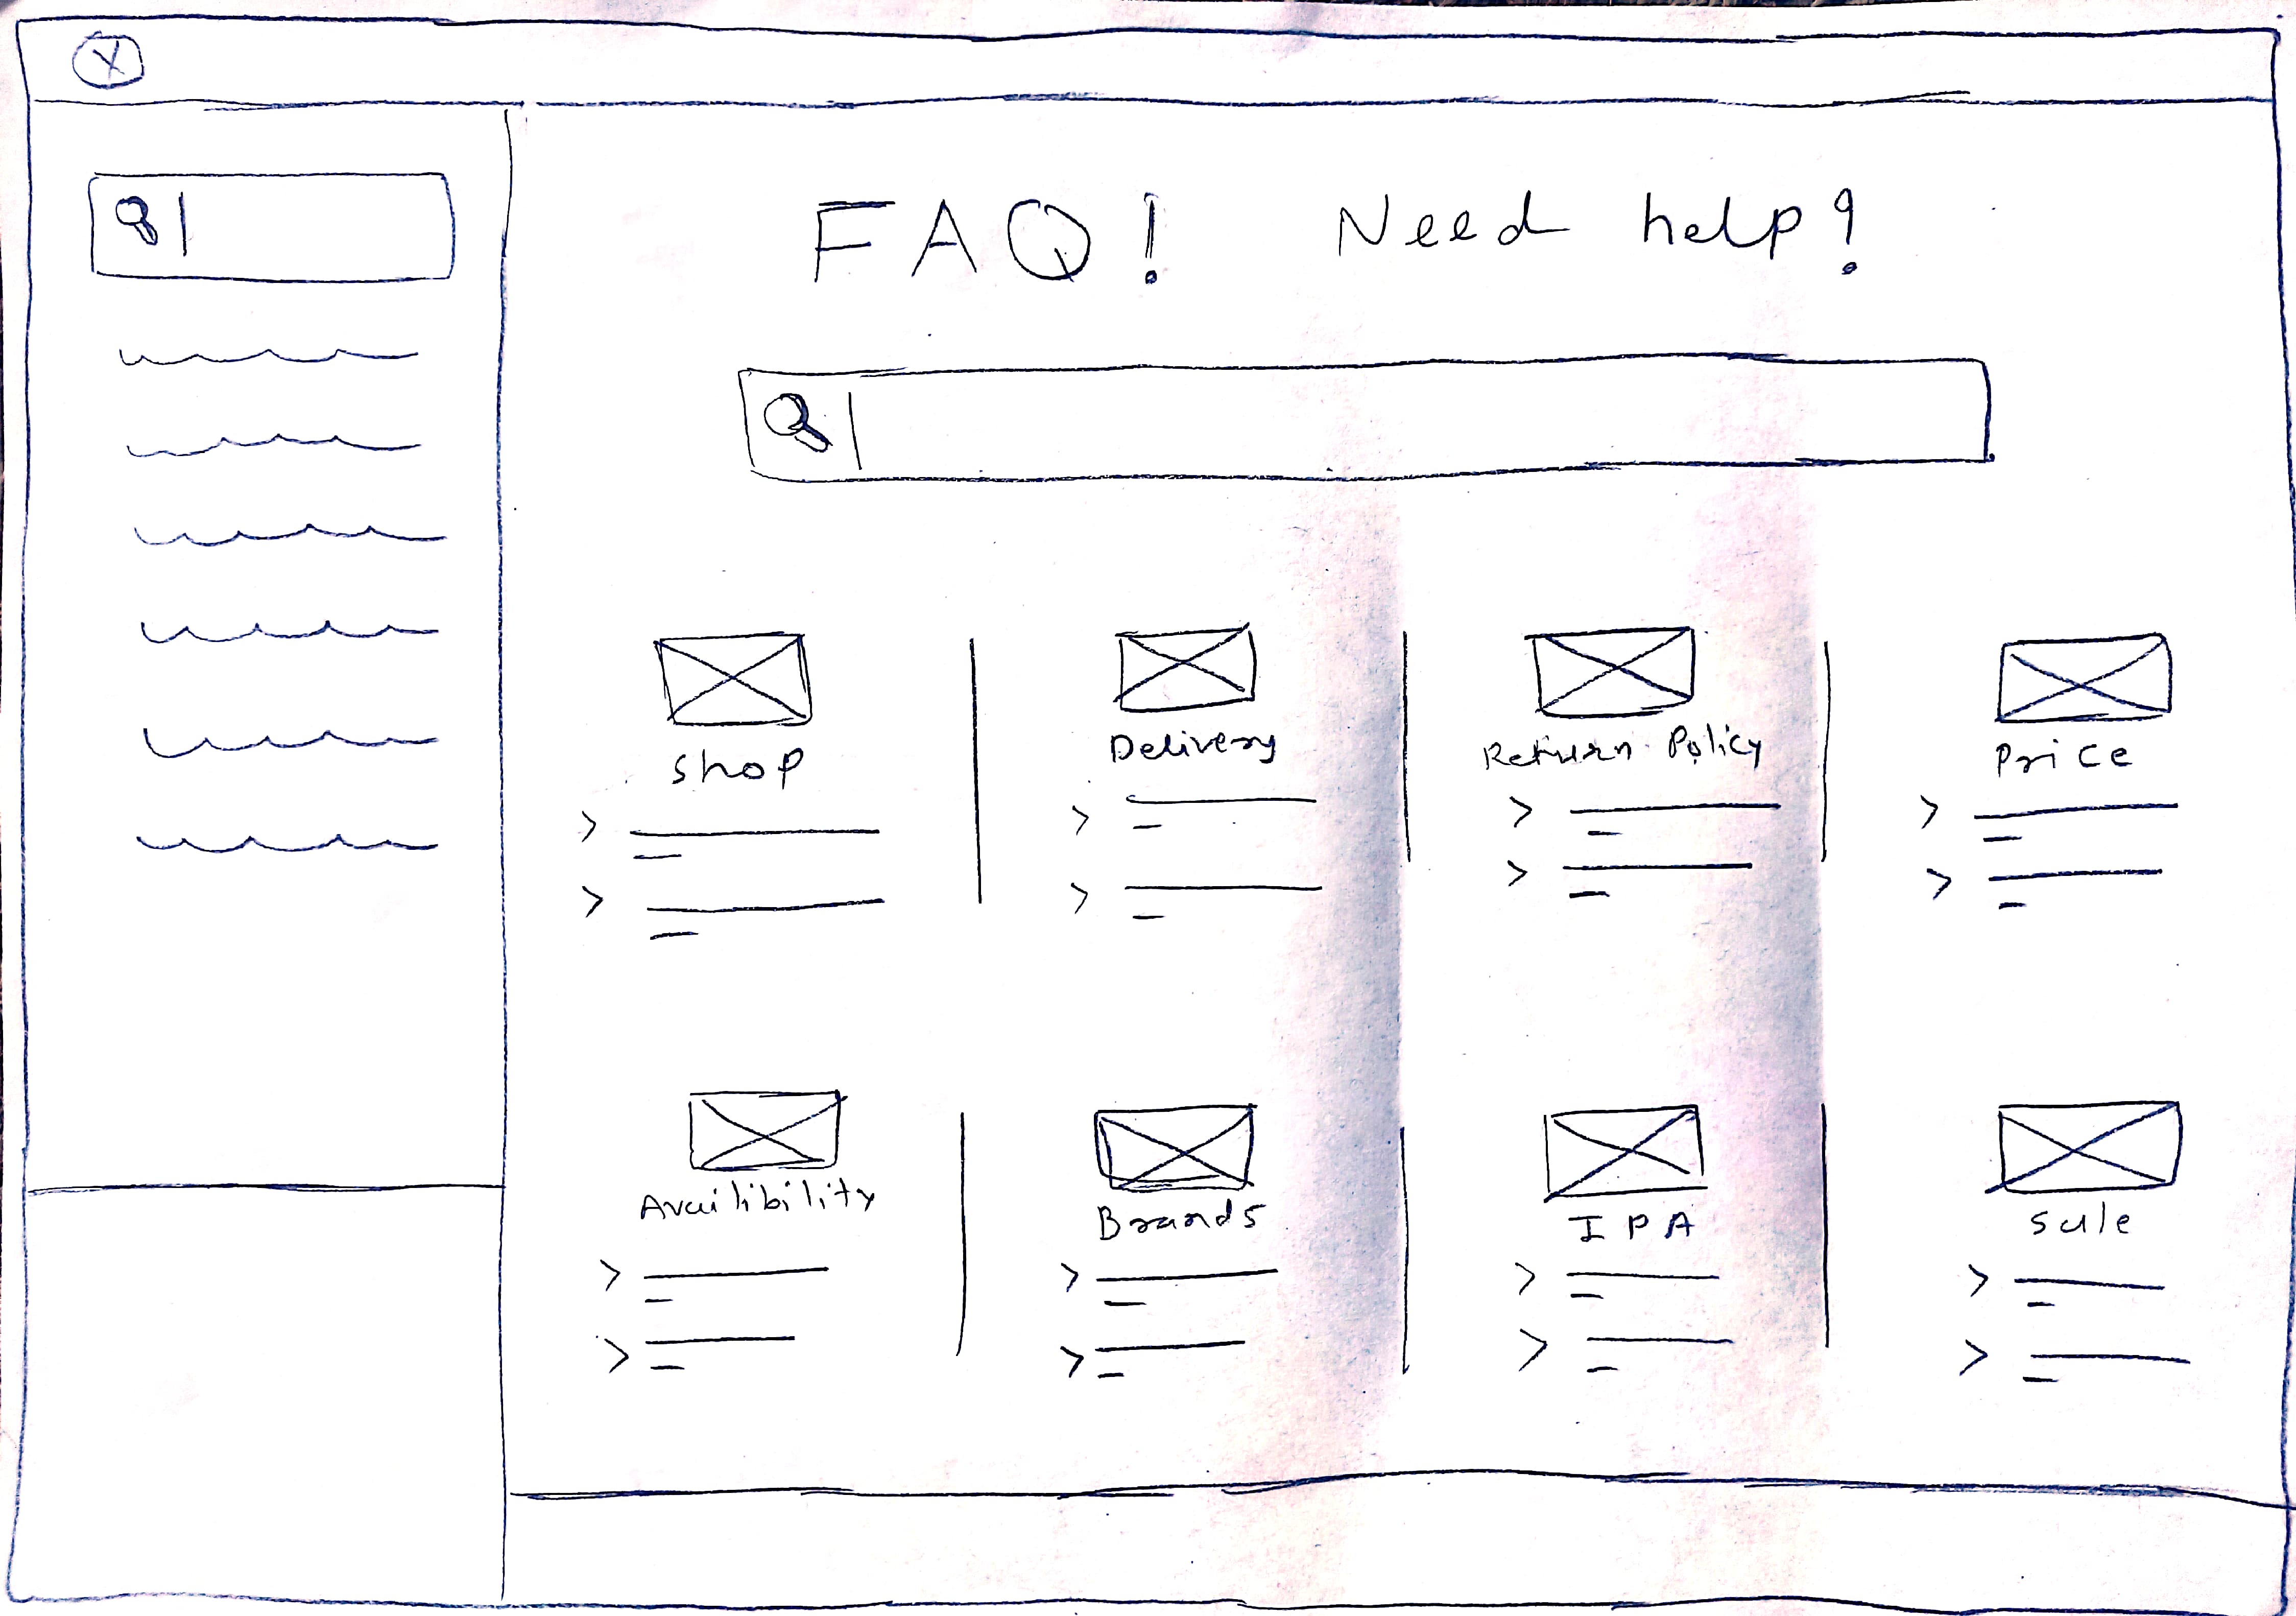 X
FAQ! Need help?
Shop
Delivery
Return Policy
Price
Availibility
Brands
IPA
Sale